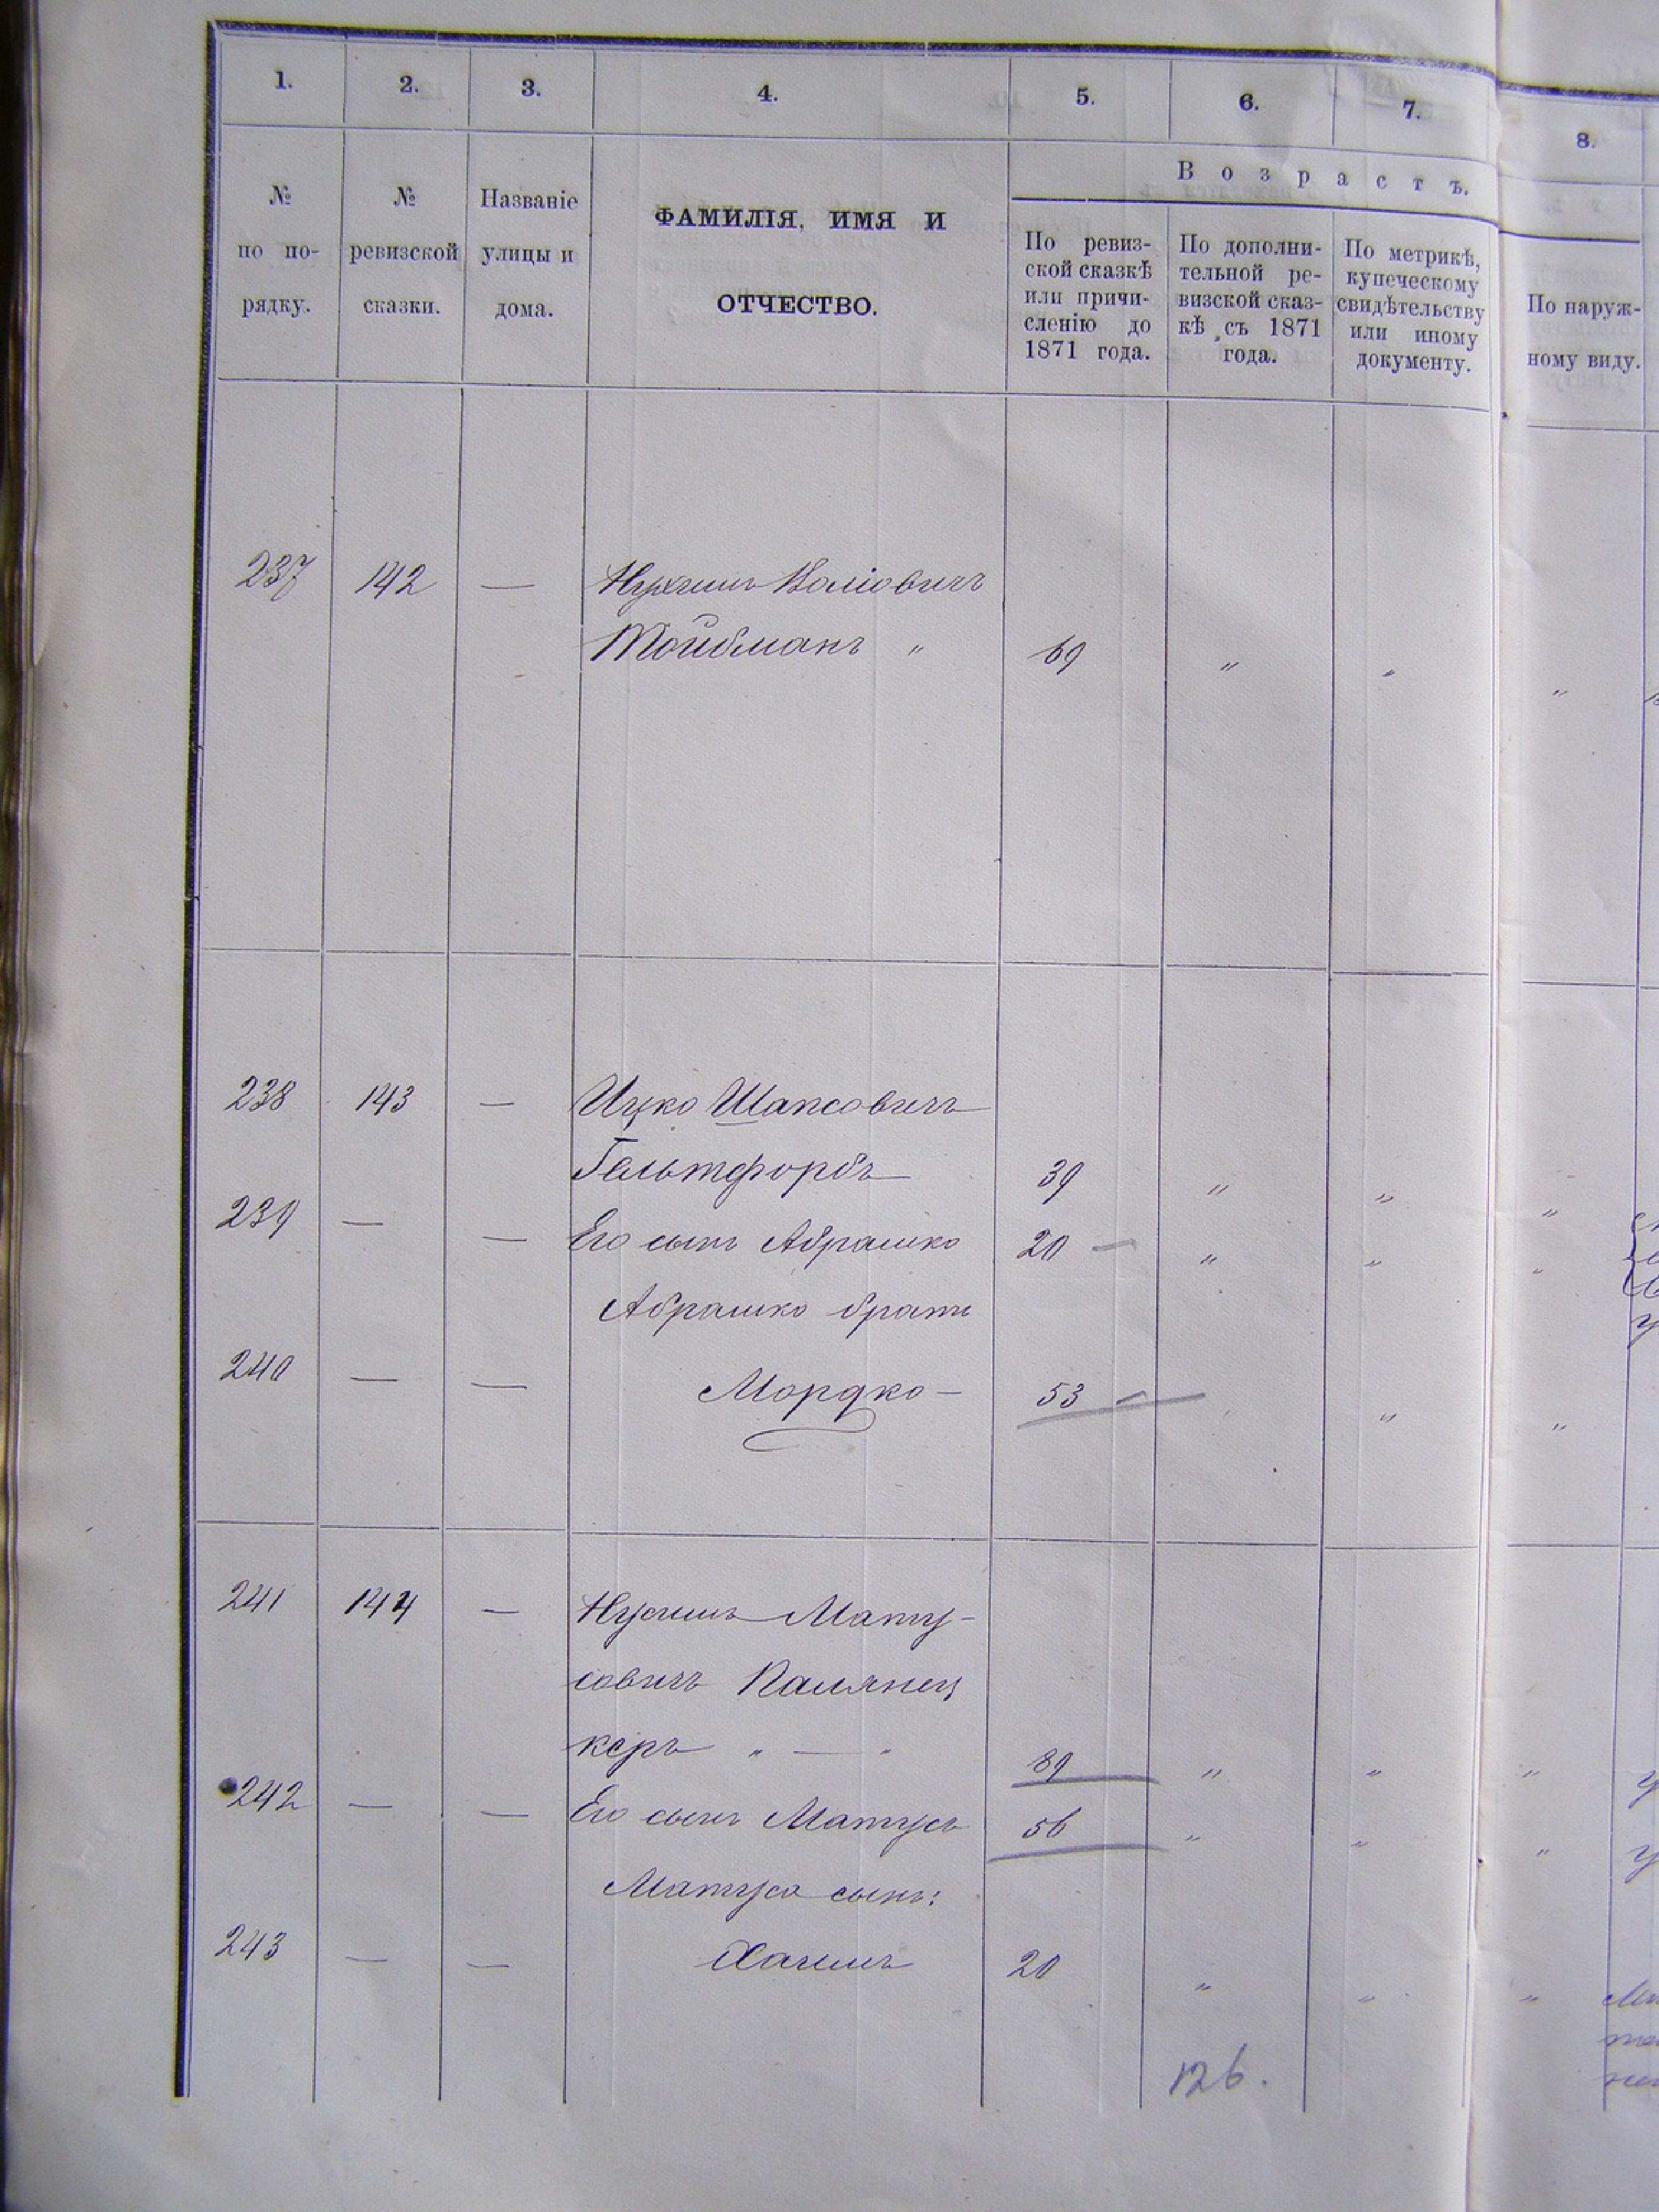 1. 2. 3. 4. 5. 6. 7. 8.
№ по по-рядку.
№ ревизской сказки.
Названіе улицы и дома.
ФАМИЛІЯ, ИМЯ И
ОТЧЕСТВО.
Возрастъ.
По ревиз-
ской сказкѣ
или причи-
сленію до
1871 года.
По дополни-
тельной ре-
визской сказ-
кѣ съ 1871
года.
По метрикѣ,
купеческому
свидѣтельству
или иному
документу.
По наруж-
ному виду.
237 142 —
Тойбманъ " 69 " " "
238 143 — Ицко Шапсовичъ
Гельтфорбъ 39 " " "
239 — — Его сынъ Абрашко 20 — " " "
Абрашко братъ
240 — — Мордко — 53 — " "
241 144 — Нухимъ Мату-
совичъ Палянец
керъ " — " 89 " " "
242 — — Его сынъ Матусъ 56 " " "
Матуса сынъ:
243 — — Хаимъ 20 " " "
126.